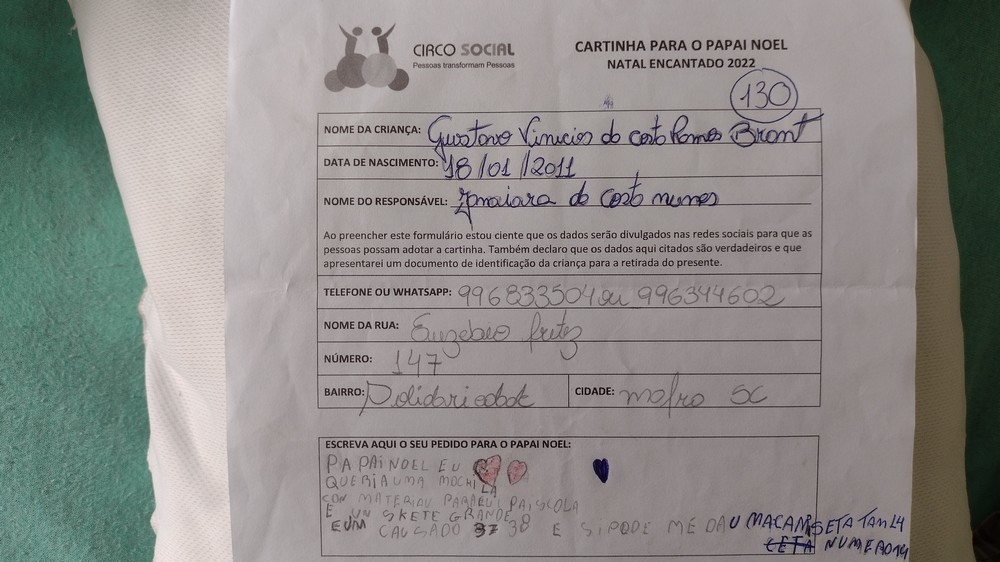 CIRCO SOCIAL
Pessoas transformam Pessoas
CARTINHA PARA O PAPAI NOEL
NATAL ENCANTADO 2022
130
NOME DA CRIANÇA: Gustavo Vinicios da costa Ramos Brant
DATA DE NASCIMENTO: 18/01/2011
NOME DO RESPONSÁVEL: da costa nunes
Ao preencher este formulário estou ciente que os dados serão divulgados nas redes sociais para que as
pessoas possam adotar a cartinha. Também declaro que os dados aqui citados são verdadeiros e que
apresentarei um documento de identificação da criança para a retirada do presente.
TELEFONE OU WHATSAPP: 996833504 ou 996344602
NOME DA RUA: Euzebio fritz
NÚMERO: 147
BAIRRO: CIDADE: mafra SC
ESCREVA AQUI O SEU PEDIDO PARA O PAPAI NOEL:
PAPAI NOEL EU
QUERIA UMA MOCHILA
CON MATERIAU PARAEU I PAISCOLA
E UN SKETE GRANDE
E UM CAUSADO 37 38 E SIPODE MÉ DAU MACAMISETA TAM 14
CETA NUMERO 14